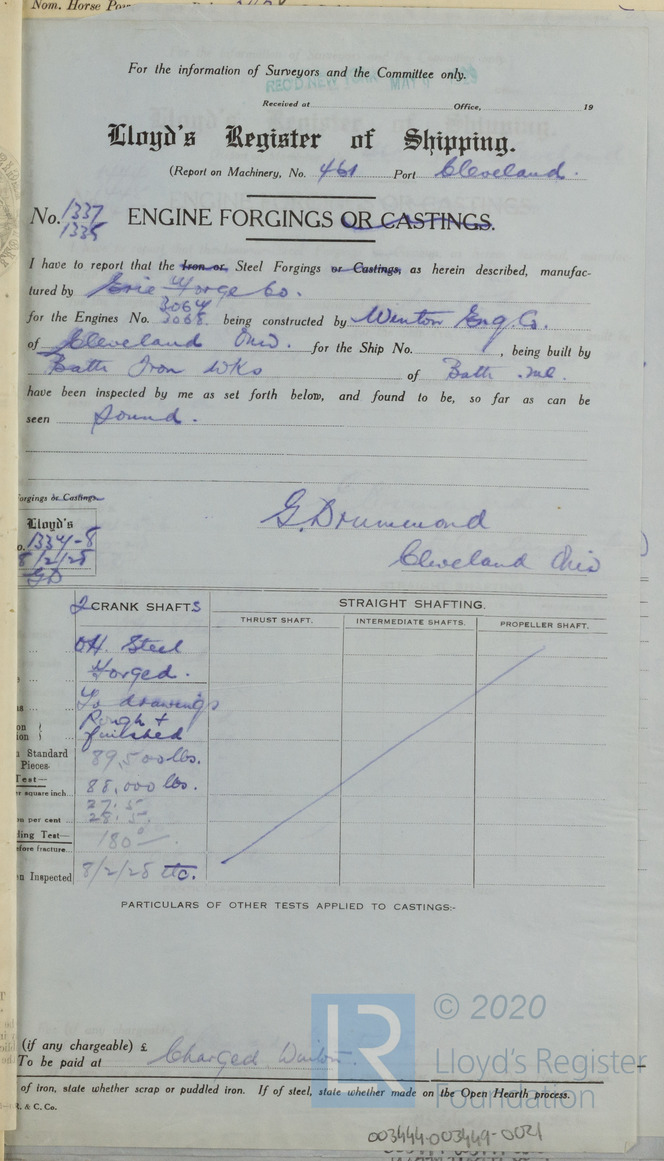 Nom. Horse Pow
For the information of Surveyors and the Committee only.
REC'D. NEW YORK MAY
Received at Office, 19
Lloyd's Register of Shipping.
(Report on Machinery, No. 461 Port Cleveland.
No. 1337
1338
ENGINE FORGINGS OR CASTINGS.
I have to report that the Iron or Steel Forgings or Castings, as herein described, manufac-
tured by Erie Forge Co.
3064
for the Engines No. 3065 being constructed by Winton Eng. Co.
of Cleveland Ohio. for the Ship No. , being built by
Bath Iron Wks of Bath Me.
have been inspected by me as set forth below, and found to be, so far as can be
seen Sound.
orgings or Castings
G. Drummond
Lloyd's
o. 1337-8
8/2/28
GD
Cleveland Ohio
2 CRANK SHAFTS
STRAIGHT SHAFTING.
THRUST SHAFT. INTERMEDIATE SHAFTS. PROPELLER SHAFT.
OH. Steel
Forged.
To drawings
Rough +
finished
Standard 89,500 lbs.
Pieces.
Test—
88,000 lbs.
r square inch
27.5
per cent 28.5
ding Test—
180°
efore fracture
n Inspected 8/2/28 etc.
PARTICULARS OF OTHER TESTS APPLIED TO CASTINGS:-
(if any chargeable) £
To be paid at Charged Winton.
of iron, state whether scrap or puddled iron. If of steel, state whether made on the Open Hearth process.
R. & C. Co.
LR
© 2020
Lloyd's Register
Foundation
003444-003449-0021